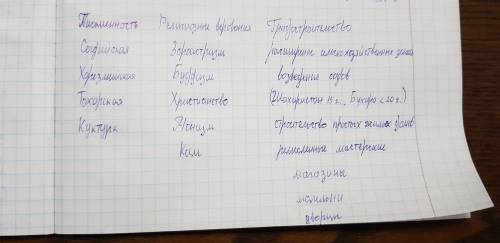 Письменность Религиозные верования Градостроительство
Согдийская Зороастризм расширение сельскохозяйственные
Хорезмийская Буддизм возведение садов
Тохарская Христианство (Шахристон 15 г., Бухара < 20 г.)
Куктурк строительство простых жилых
Кам ремесленные мастерские
магазины
дворцы